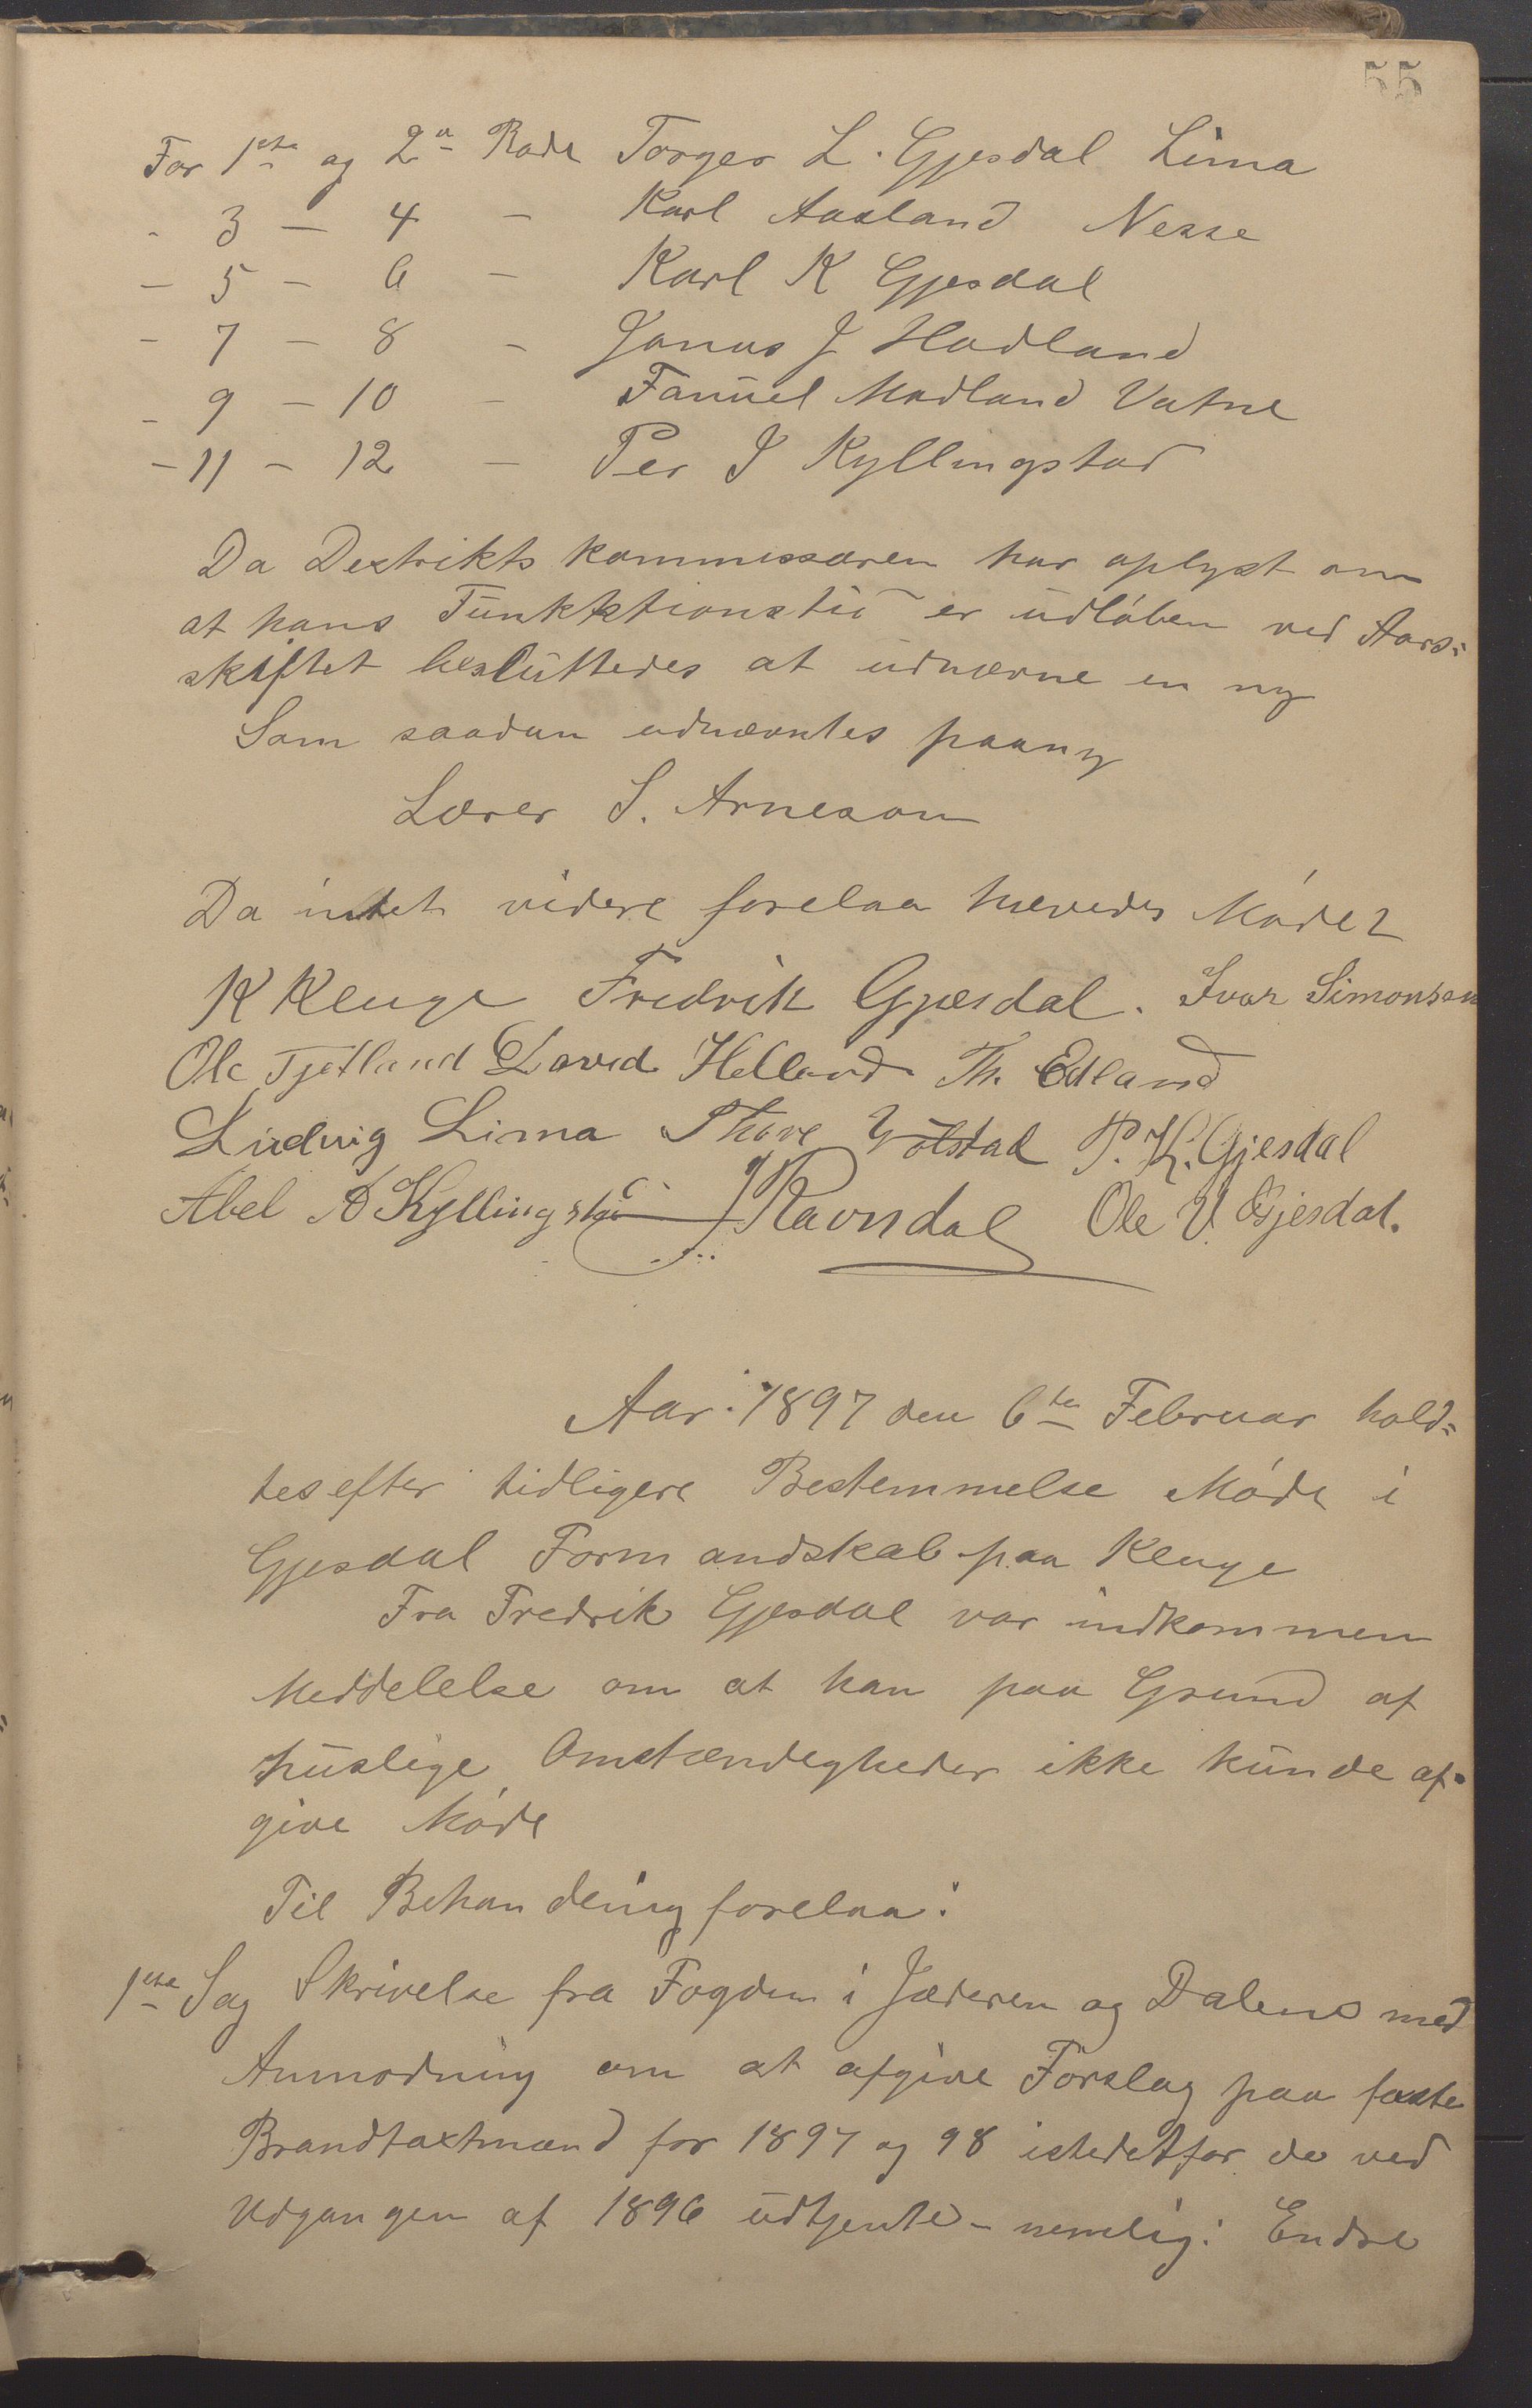 55
For 1ste og 2den Rode Torger L. Gjesdal Lima
- 3 - 4 - Karl Aasland Nesse
- 5 - 6 - Karl K Gjesdal
- 7 - 8 - Jonas J Hadland
- 9 - 10 - Fanuel Madland Vatne
- 11 - 12 - Per J Kyllingstad
Da Destrikts kommissæren har oplyst om
at hans Funkktionstid er udløben ved Aars=
skiftet besluttedes at udnævne en ny
Som saadan udnævntes paany
Lærer S. Arneson
Da intet videre forelaa hævedes Mødet
K Kluge Fredrik Gjesdal. Ivar Simonsen
Ole Tjetland David Helland Th. Edland
Ludvig Lima Thore Ølstad P. K. Gjesdal
Abel A Kyllingstad J Ravndal Ole V. Gjesdal.
Aar 1897 den 6te Februar hold=
tes efter tidligere Bestemmelse Møde i
Gjesdal Formandskab paa Kluge
Fra Fredrik Gjesdal var indkommen
Meddelelse om at han paa Grund af
huslige Omstændegheder ikke kunde af=
give Møde
Til Behandling forelaa:
1ste Sag Skrivelse fra Fogden i Jæderen og Dalene med
Anmodning om at afgive Forslag paa faste
Brandtaxtmænd for 1897 og 98 istedetfor de ved
Udgangen af 1896 udtjente - nemlig: Endre